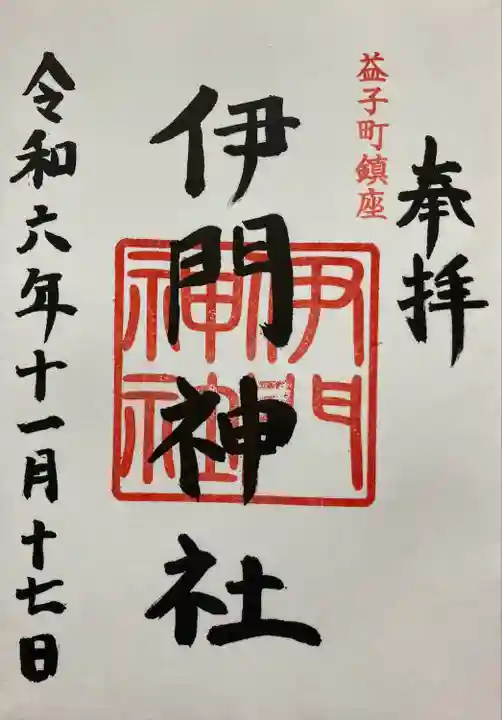 奉拝
益子町鎮座
伊門神社
伊門
神社
令和六年十一月十七日